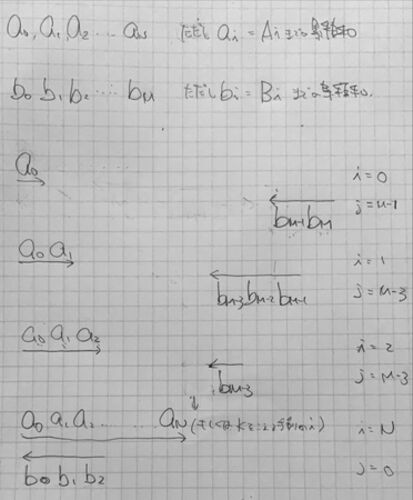 a₀, a₁, a₂ … a_N ただし a_i = A_i までの累積和
b₀ b₁ b₂ … b_M ただし b_i = B_i までの累積和.
a₀ i = 0
b_{M-1} b_M j = M-1
a₀ a₁ i = 1
b_{M-3} b_{M-2} b_{M-1} j = M-3
a₀ a₁ a₂ i = 2
b_{M-3} j = M-3
a₀ a₁ a₂ …… a_N i = N
b₀ b₁ b₂ j = 0